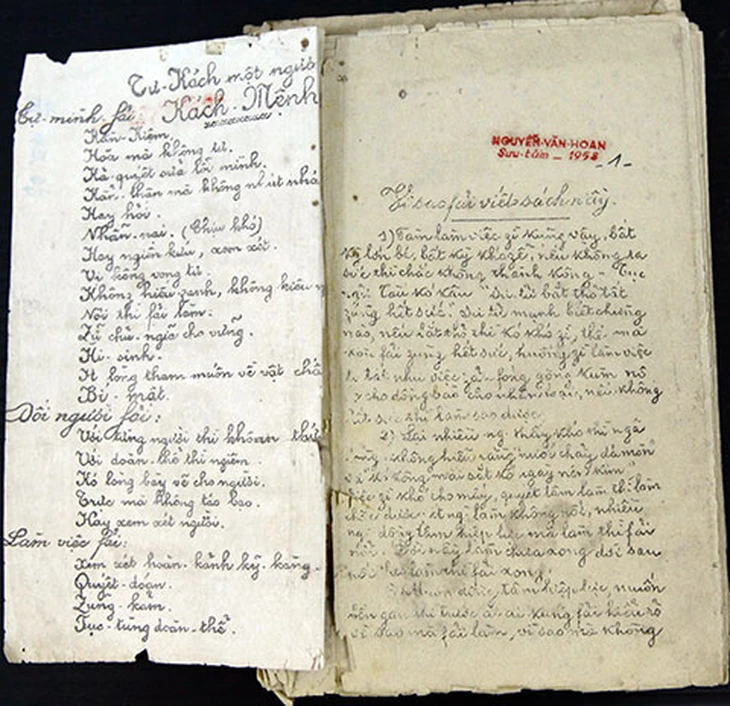 Tư-Kách một người
Kách-Mệnh
Tự-mình fải:
Kần-Kiệm.
Hòa mà không tư.
Kả-quyết sửa lỗi mình.
Kẩn-thận mà không nhút nhá
Hay hỏi.
Nhẫn-nại. (Chịu khó)
Hay ngiên-kứu, xem xét.
Vị kông vong tư.
Không hiếu zanh, không kiêu n
Nói thì fải làm.
Zữ chủ-ngĩa cho vững.
Hi-sinh.
Ít lòng tham muốn về vật chấ
Bí-mật.
Đối người fải:
Với từng người thì khoan thứ
Với đoàn-thể thì ngiêm.
Kó lòng bày vẽ cho người.
Trực mà không táo bạo.
Hay xem xét người.
Làm việc fải:
Xem xét hoàn-kảnh kỹ-kàng.
Quyết-đoán.
Zũng-kảm.
Fục-tùng đoàn-thể.
NGUYỄN-VĂN-HOAN
Sưu-tầm _ 1958
-1-
Vì sao fải viết sách nầy.
1) Fàm làm việc zì kũng vậy, bất
kỳ lớn bé, bất kỳ khó zễ, nếu không ra
sức thì chắc không thành kông - Tục
ngữ Tàu kó kâu "Sư tử bắt thỏ tất
zùng hết sức". Sư tử mạnh biết chừng
nào, nếu bắt thỏ thì kó khó zì, thế mà
kòn fải zùng hết sức, huống zì làm việc
to tát như việc zải-fóng gông kùm nô
cho đồng bào, cho nhân loại, nếu không
hết sức thì làm sao được.
2) Lại nhiều ng. thấy khó thì ngã
lòng - không hiểu rằng "nước chảy đá mòn"
và "kó kông mài sắt kó ngày nên kim"
việc zì khó cho mấy, quyết tâm làm thì làm
được, ít ng. làm không nổi, nhiều
ng. đồng tâm hiệp lực mà làm thì fải
nổi. Đời nầy làm chưa xong đời sau
nối theo làm thì fải xong.
tâm hiệp lực, muốn
bền gan thì trước ai ai kũng fải hiểu rõ
vì sao mà fải làm, vì sao mà không